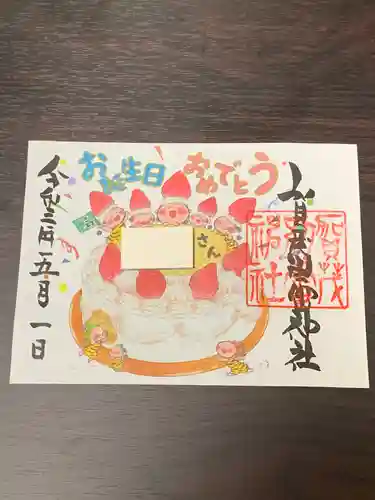 お誕生日おめでとう
さん
賀茂別雷神社
賀茂
神社
令和三年五月一日